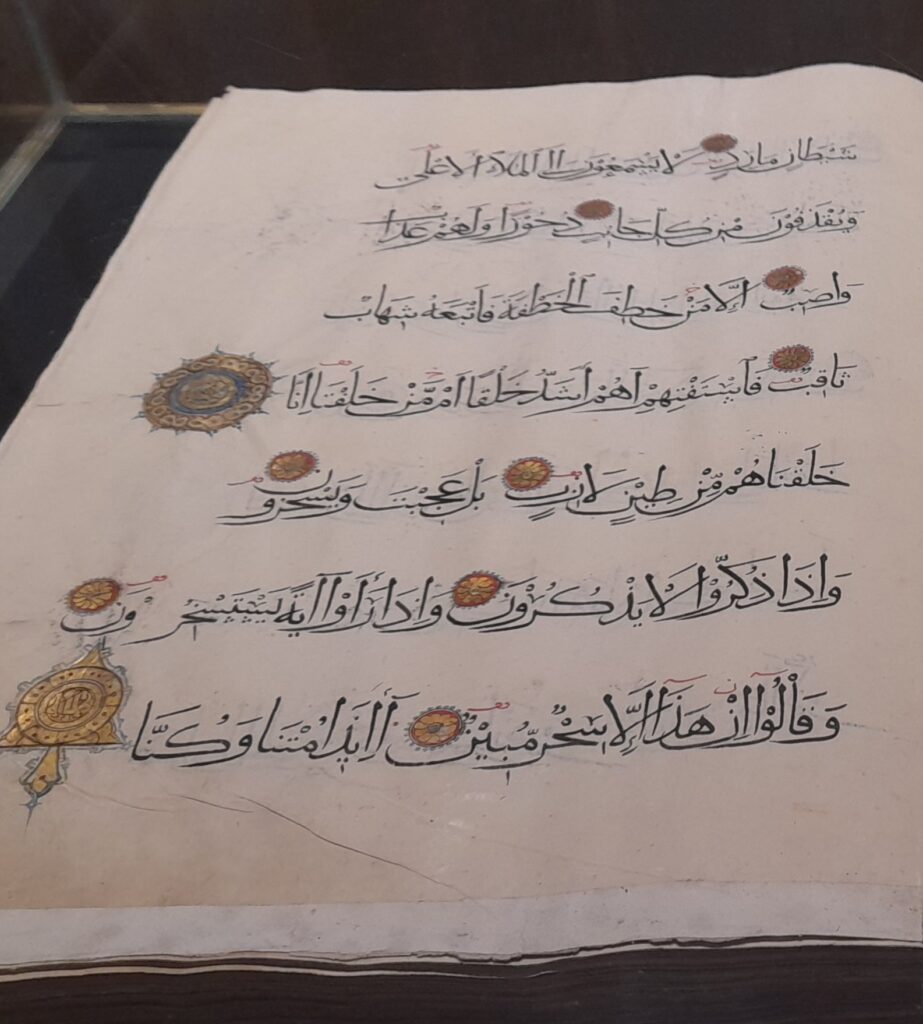 شَيْطَانٍ مَارِدٍ لَا يَسْمَعُونَ إِلَى الْمَلَاءِ الْأَعْلَى
وَيُقْذَفُونَ مِنْ كُلِّ جَانِبٍ دُحُورًا وَلَهُمْ عَذَا
وَاصِبٌ إِلَّا مَنْ خَطِفَ الْخَطْفَةَ فَأَتْبَعَهُ شِهَابٌ
ثَاقِبٌ فَاسْتَفْتِهِمْ أَهُمْ أَشَدُّ خَلْقًا أَمْ مَّنْ خَلَقْنَا إِنَّا
خَلَقْنَاهُمْ مِّنْ طِينٍ لَازِبٍ بَلْ عَجِبْتَ وَيَسْخَرُونَ
وَإِذَا ذُكِّرُوا لَا يَذْكُرُونَ وَإِذَا رَأَوْا آيَةً يَسْتَسْخِرُونَ
وَقَالُوا إِنْ هَذَا إِلَّا سِحْرٌ مُّبِينٌ أَإِذَا مِتْنَا وَكُنَّا